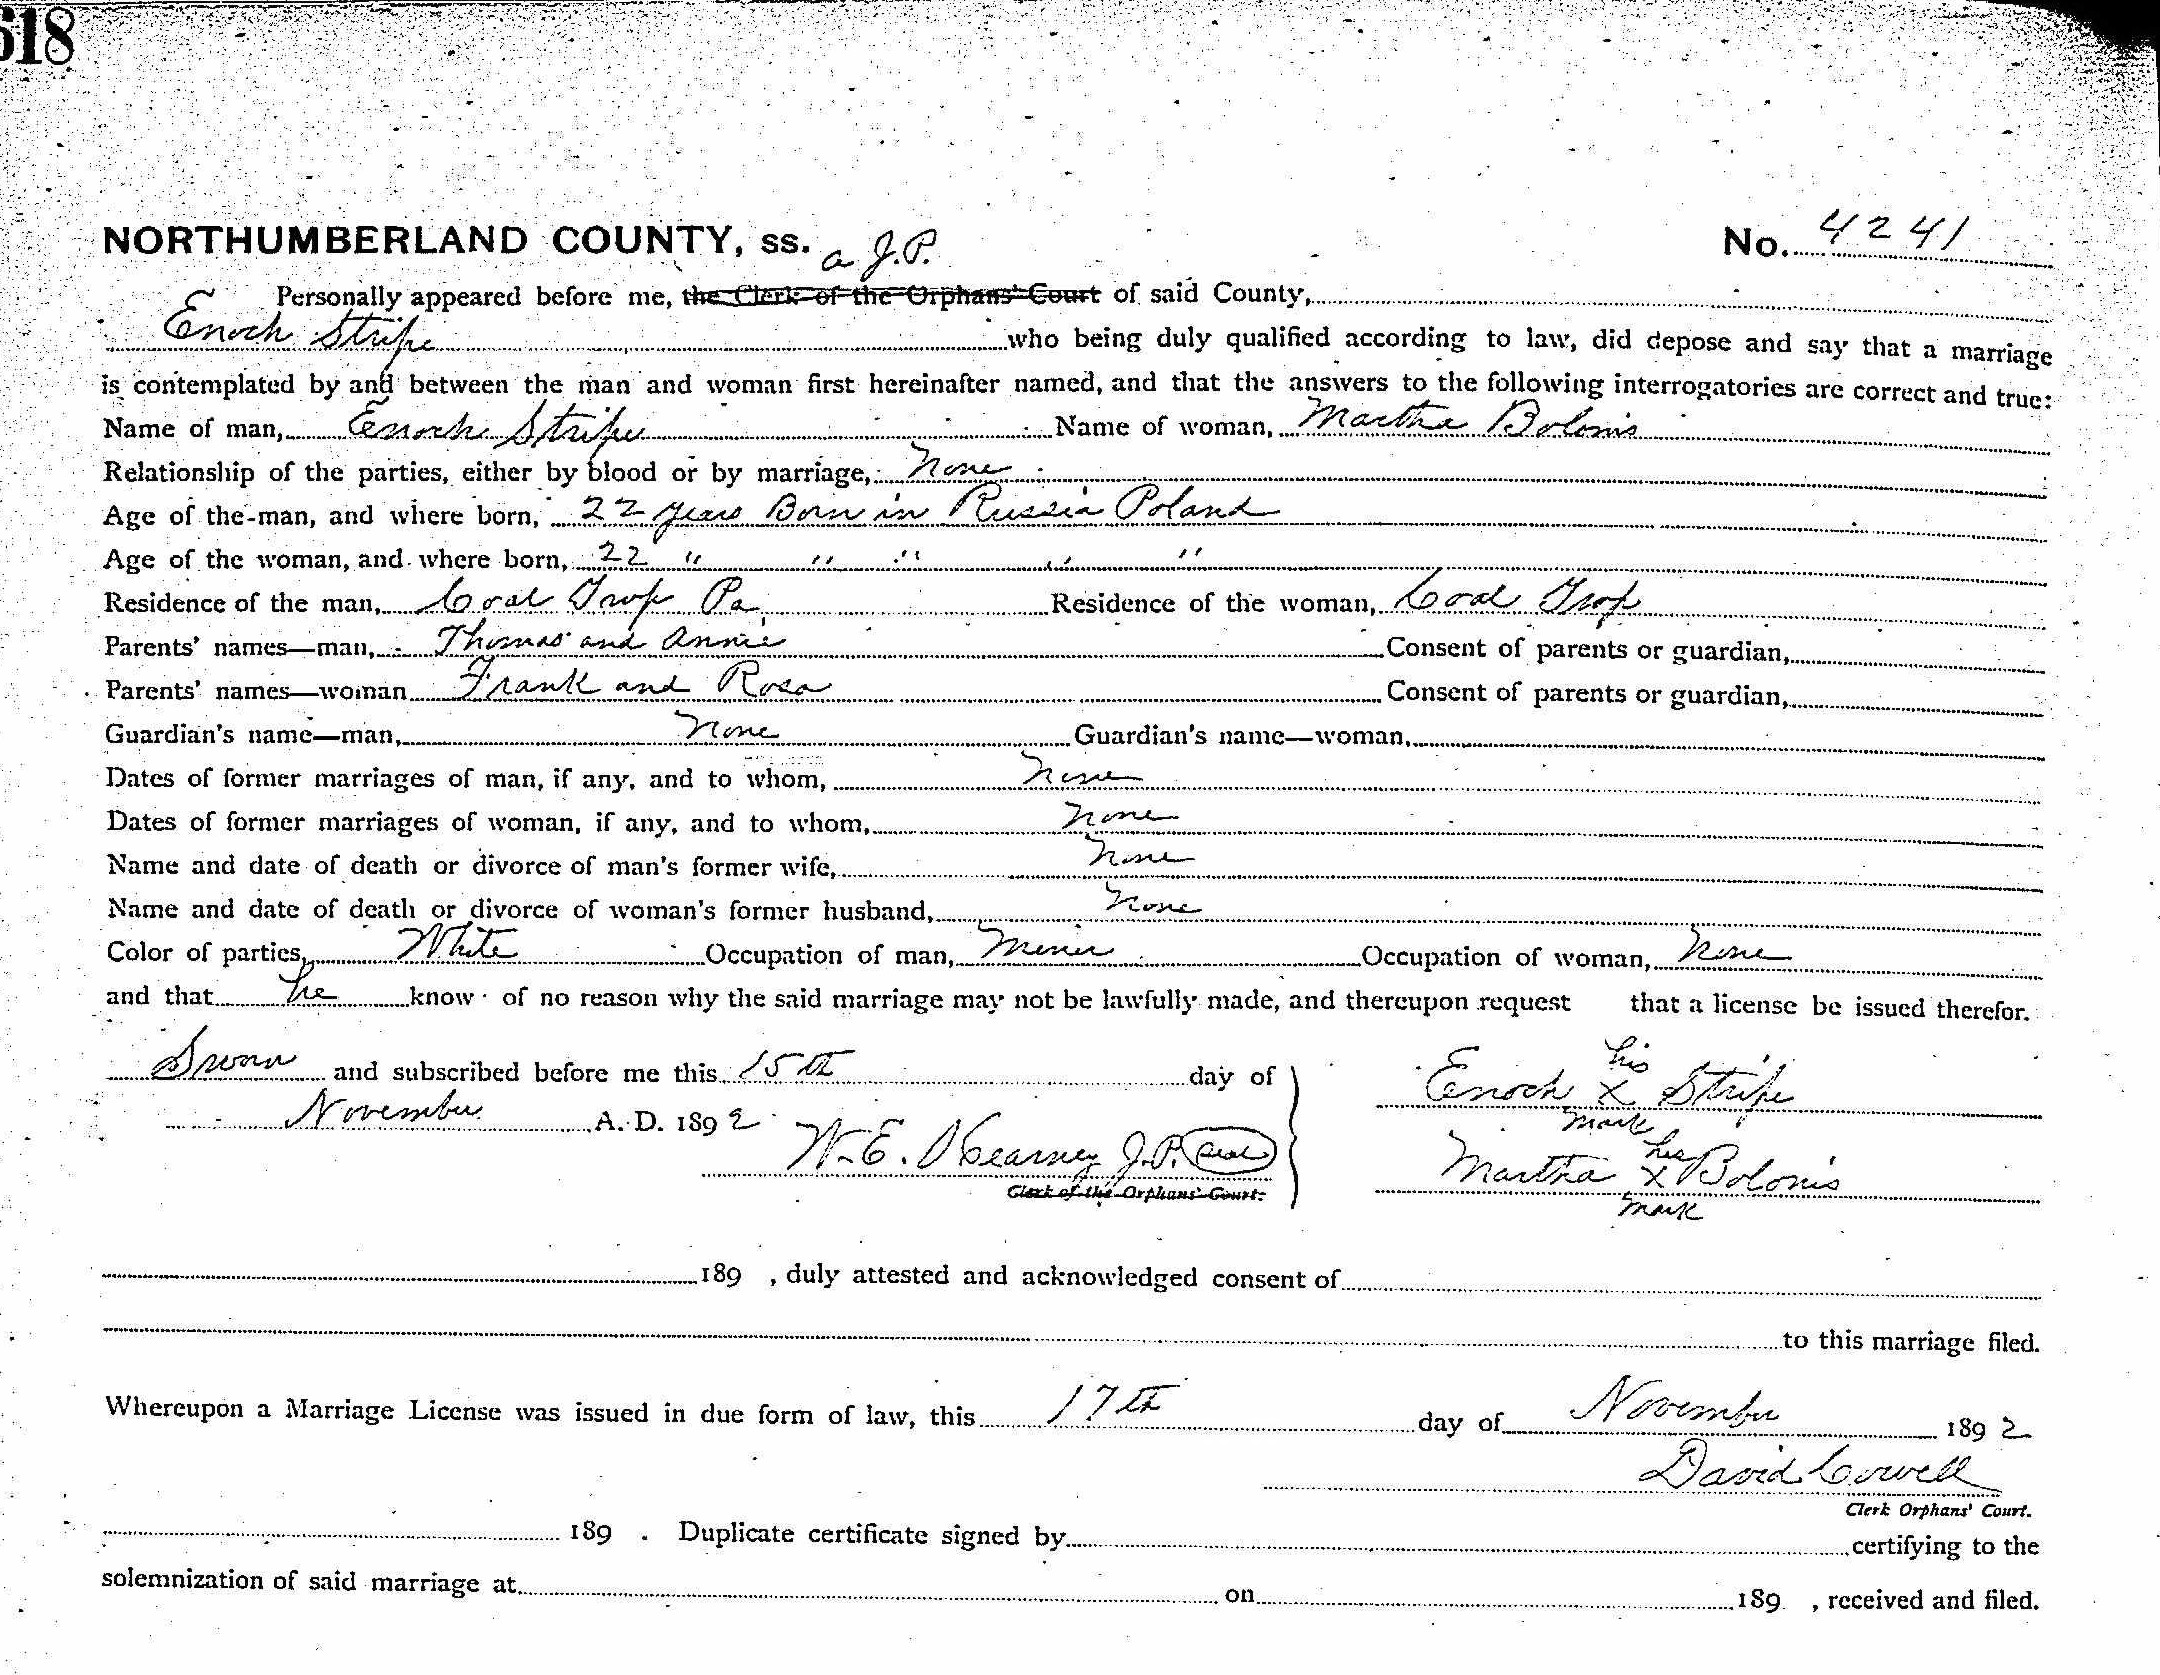 618
NORTHUMBERLAND COUNTY, ss. a J.P. No. 4241
Personally appeared before me, the Clerk of the Orphans' Court of said County,
Enoch Stripe who being duly qualified according to law, did depose and say that a marriage
is contemplated by and between the man and woman first hereinafter named, and that the answers to the following interrogatories are correct and true:
Name of man, Enoch Stripe Name of woman, Martha Bolonis
Relationship of the parties, either by blood or by marriage, None
Age of the man, and where born, 22 years Born in Russia Poland
Age of the woman, and where born, 22 " " " " "
Residence of the man, Coal Twp Pa. Residence of the woman, Coal Twp
Parents' names—man, Thomas and Annie Consent of parents or guardian,
Parents' names—woman Frank and Rosa Consent of parents or guardian,
Guardian's name—man, None Guardian's name—woman,
Dates of former marriages of man, if any, and to whom, None
Dates of former marriages of woman, if any, and to whom, None
Name and date of death or divorce of man's former wife, None
Name and date of death or divorce of woman's former husband, None
Color of parties, White Occupation of man, Miner Occupation of woman, None
and that he know of no reason why the said marriage may not be lawfully made, and thereupon request that a license be issued therefor.
Sworn and subscribed before me this 15th day of
November A. D. 1892
W. E. Kearney J.P. Seal
Clerk of the Orphans' Court.
his
Enoch X Stripe
mark
her
Martha X Bolonis
mark
189 , duly attested and acknowledged consent of
to this marriage filed.
Whereupon a Marriage License was issued in due form of law, this 17th day of November 1892
David Cowell
Clerk Orphans' Court.
189 . Duplicate certificate signed by certifying to the
solemnization of said marriage at on 189 , received and filed.